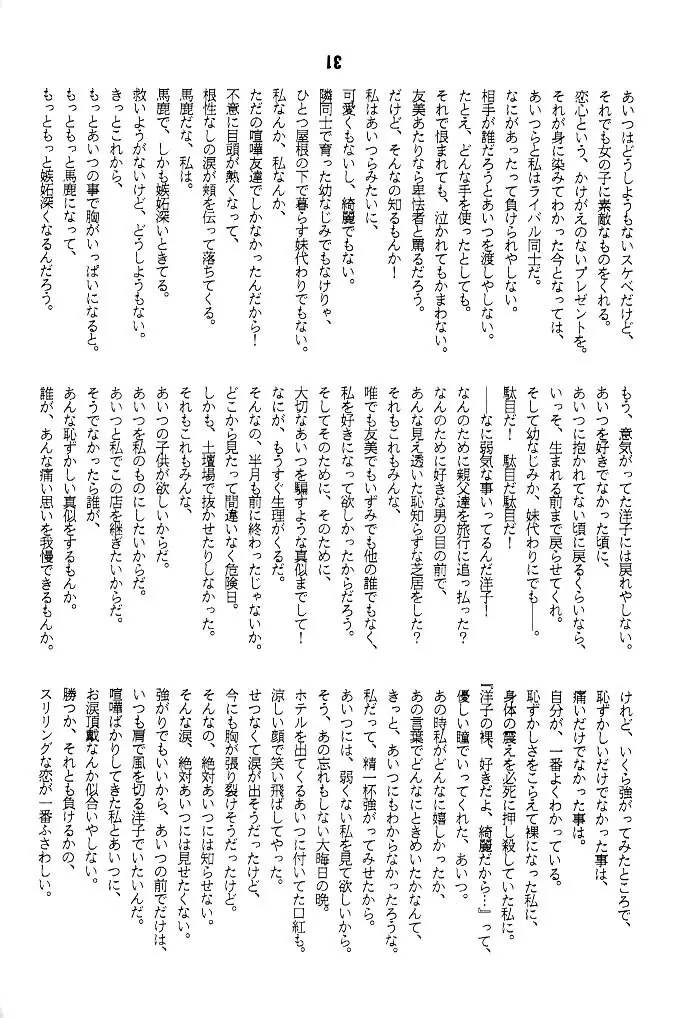 31
あいつはどうしようもないスケベだけど、
それでも女の子に素敵なものをくれる。
恋心という、かけがえのないプレゼントを。
それが身に染みてわかった今となっては、
あいつらと私はライバル同士だ。
なにがあったって負けられやしない。
相手が誰だろうとあいつを渡しやしない。
たとえ、どんな手を使ったとしても。
それで恨まれても、泣かれてもかまわない。
友美あたりなら卑怯者と罵るだろう。
だけど、そんなの知るもんか!
私はあいつらみたいに、
可愛くもないし、綺麗でもない。
隣同士で育った幼なじみでもなけりゃ、
ひとつ屋根の下で暮らす妹代わりでもない。
私なんか、私なんか、
ただの喧嘩友達でしかなかったんだから!
不意に目頭が熱くなって、
根性なしの涙が頬を伝って落ちてくる。
馬鹿だな、私は。
馬鹿で、しかも嫉妬深いときてる。
救いようがないけど、どうしようもない。
きっとこれから、
もっとあいつの事で胸がいっぱいになると。
もっともっと馬鹿になって、
もっともっと嫉妬深くなるんだろう。
もう、意気がってた洋子には戻れやしない。
あいつを好きでなかった頃に、
あいつに抱かれてない頃に戻るくらいなら、
いっそ、生まれる前まで戻らせてくれ。
そして幼なじみか、妹代わりにでも――。
駄目だ!　駄目だ駄目だ!
――なに弱気な事いってるんだ洋子!
なんのために親父達を旅行に追っ払った?
なんのために好きな男の目の前で、
あんな見え透いた恥知らずな芝居をした?
それもこれもみんな、
唯でも友美でもいずみでも他の誰でもなく、
私を好きになって欲しかったからだろう。
そしてそのために、そのために、
大切なあいつを騙すような真似までして!
なにが、もうすぐ生理がくるだ。
そんなの、半月も前に終わったじゃないか。
どこから見たって間違いなく危険日。
しかも、土壇場で抜かせたりしなかった。
それもこれもみんな、
あいつの子供が欲しいからだ。
あいつを私のものにしたいからだ。
あいつと私でこの店を継ぎたいからだ。
そうでなかったら誰が、
あんな恥ずかしい真似をするもんか。
誰が、あんな痛い思いを我慢できるもんか。
けれど、いくら強がってみたところで、
恥ずかしいだけでなかった事は、
痛いだけでなかった事は。
自分が、一番よくわかっている。
恥ずかしさをこらえて裸になった私に、
身体の震えを必死に押し殺していた私に。
『洋子の裸、好きだよ、綺麗だから…』って、
優しい瞳でいってくれた、あいつ。
あの時私がどんなに嬉しかったか、
あの言葉でどんなにときめいたかなんて、
きっと、あいつにもわからなかったろうな。
私だって、精一杯強がってみせたから。
あいつには、弱くない私を見て欲しいから。
そう、あの忘れもしない大晦日の晩。
ホテルを出てくるあいつに付いてた口紅も。
涼しい顔で笑い飛ばしてやった。
せつなくて涙が出そうだったけど、
今にも胸が張り裂けそうだったけど。
そんなの、絶対あいつには知らせない。
そんな涙、絶対あいつには見せたくない。
強がりでもいいから、あいつの前でだけは、
いつも肩で風を切る洋子でいたいんだ。
喧嘩ばかりしてきた私とあいつに、
お涙頂戴なんか似合いやしない。
勝つか、それとも負けるかの、
スリリングな恋が一番ふさわしい。